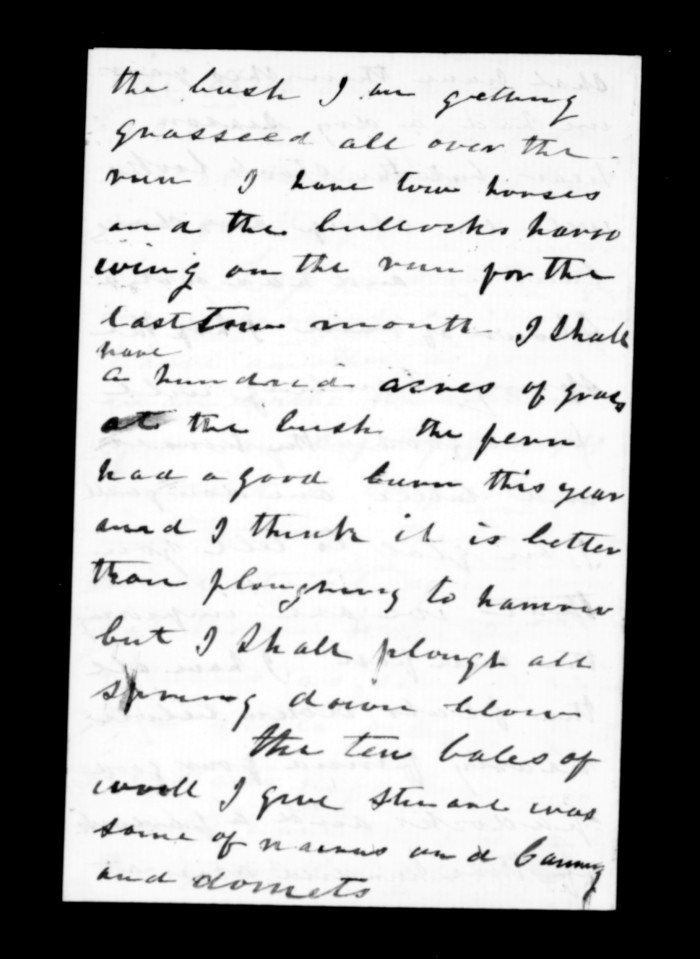 the bush I am getting
grasseed all over the
run I have tow horses
and the bullocks harro
wing on the run for the
last tow month I Shall
have
a hundred acres of grass
at the bush the fern
had a good burn this year
and I think it is better
than ploughing to harrow
but I Shall plough all
spring down below
the ten bales of
wooll I give Stuart was
some of and
and domets